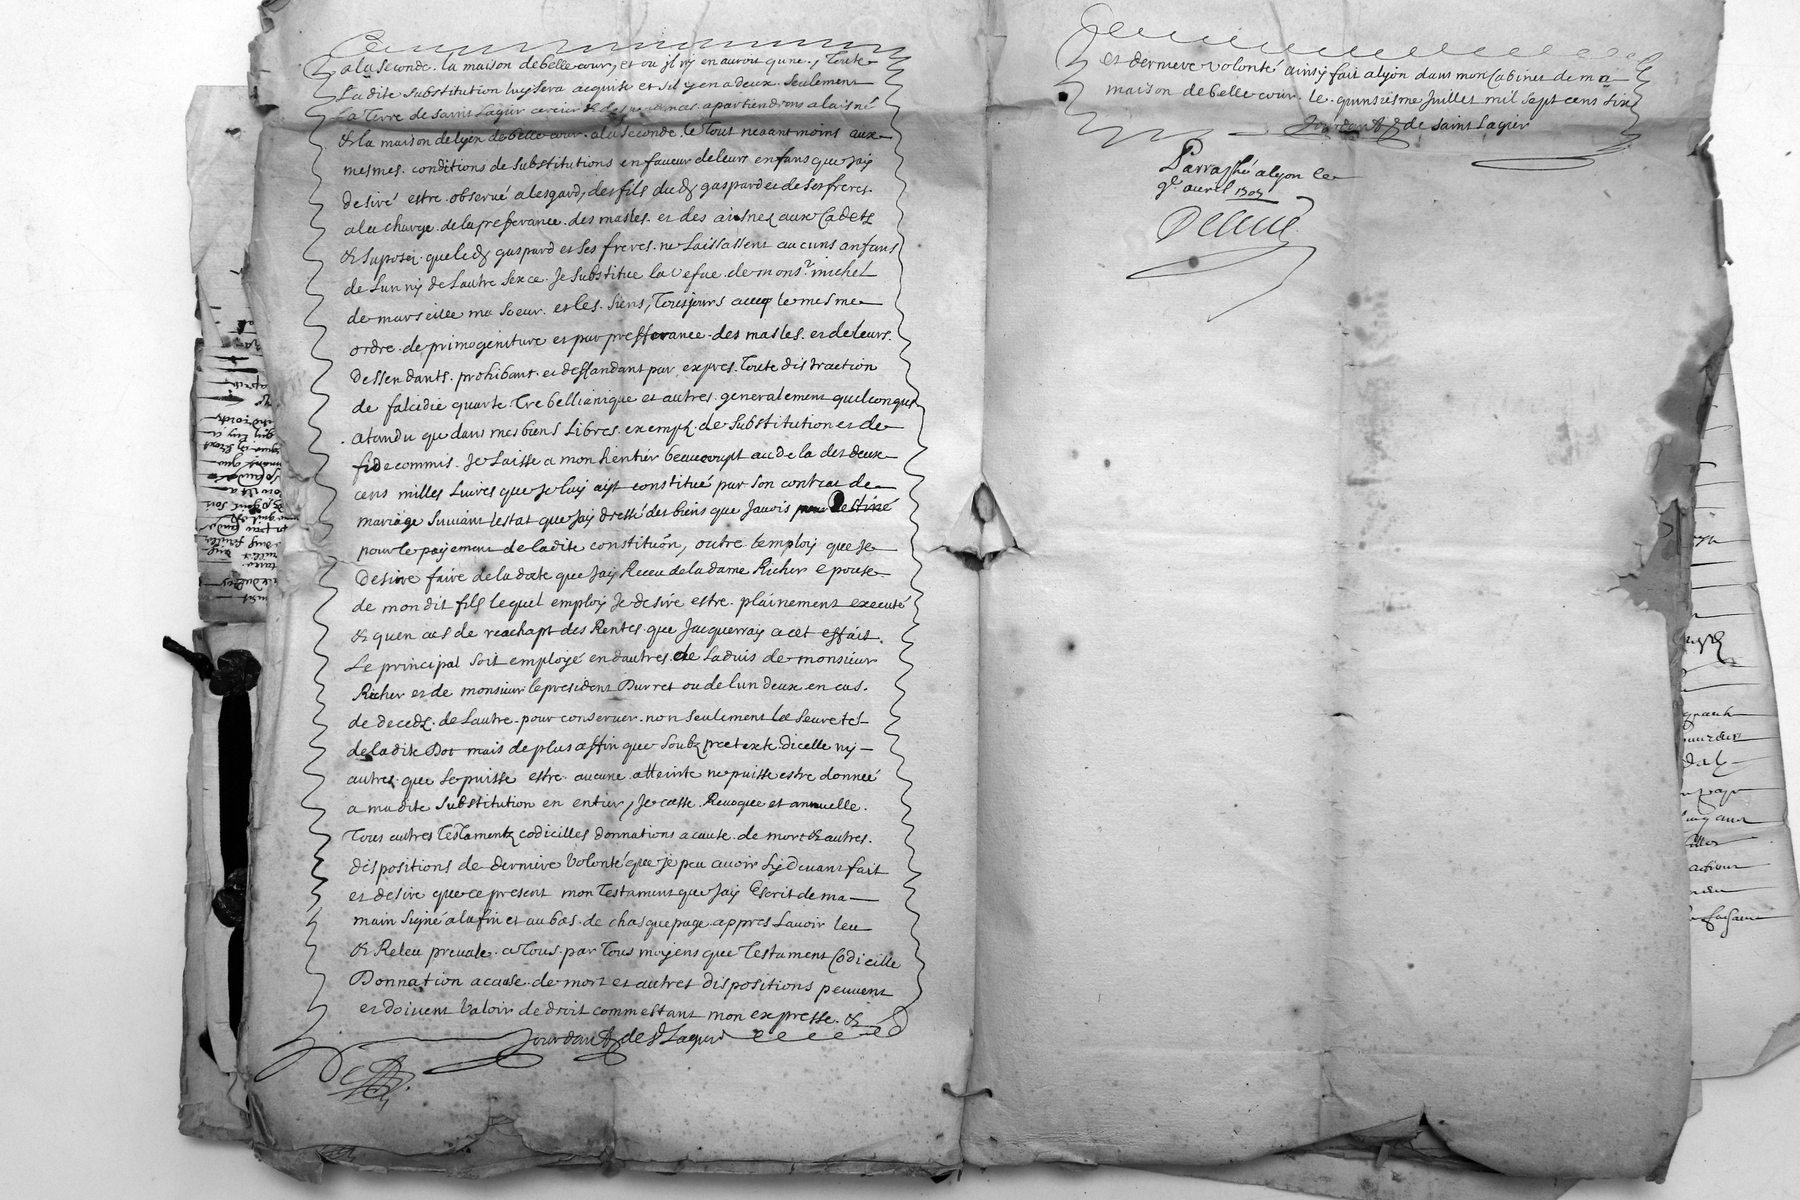 a la seconde. la maison de belle cour, et ou jl ny en auroit qune, Toute
Ladite substitution luy sera acquise et sil y en a deux seulement
La Terre de saint Lagier cercié & dependences apartiendrons a laisné
& la maison de lyon de belle cour. a la seconde. le Tout neaantmoins aux
mesmes. conditions de substitutions en faveur de leurs enfans que jay
desiré estre. observué a lesgard, des fils dud. gaspard et de ses freres.
a la charge. de la preferance. des masles. et des aisnez aux Cadetz
& suposéz que led. gaspard et ses freres. ne laissassent aucuns anfans
de Lun ny de Lautre sexce. Je substitue la vefue. de monsr. michel
de marseille ma soeur. et les. siens, Tousjours avecq le mesme
ordre. de primogeniture et par presferance. des masles. et de leurs.
Dessendants. prohibant. et desfandant par expres. Toute distraction
de falcidie quarte. Trebellianique et autres. generalement quelconques
. atandu que dans mes biens libres. exempz. de substitution et de
fidecommis. Je Laisse a mon heritier beaucoupt au de la des deux
cens milles Livres que Je luy ayt constitué par son contrac de
mariage suivant lestat que jay dressé des biens que javois destiné
pour le payemant de ladite constituon, outre Lemploy que Je
Desire faire de la dote que jay Receu de la dame Richer epouse.
de mondit fils lequel employ Je desire estre. plainement executé
& quen cas de reachapt des Rentes. que Jacquerray a cet effait.
Le principal soit employé en dautres. de Ladvis de monsieur
Richer et de monsieur le president Durret ou de lun deux en cas.
de decedz. de Lautre. pour conserver. non seulement les seuretés
de ladite Dot mais de plus affin que soubz pretexte dicelle ny
autres. que se puisse estre. aucune atteinte ne puisse estre donneé
a madite substitution en entier, Je casse. Revoquee et annuelle.
Tous autres Testamentz codicilles donnations a cause de mort & autres.
dispositions de derniere Volonté que je peu avoir sy Devant fait
et desire que ce present mon Testament que jay Escrit de ma
main signé a la fin et au bas. de chasque page. appres Lavoir leu
& Releu prevale. a Tous. par Tous moyens que Testament Codicille
Donnation a cause. de mort et autres dispositions peuvent
et doivent Valoir de droit comm estant mon expresse. &
Jourdan de St Lagier
et derniere volonté ainsy fait a lyon dans mon Cabinet de ma
maison de belle cour. le. quinsiesme Juillet mil sept cens six
Jourdan de saint Lagier
Parraphé a lyon le
9e avril 1707